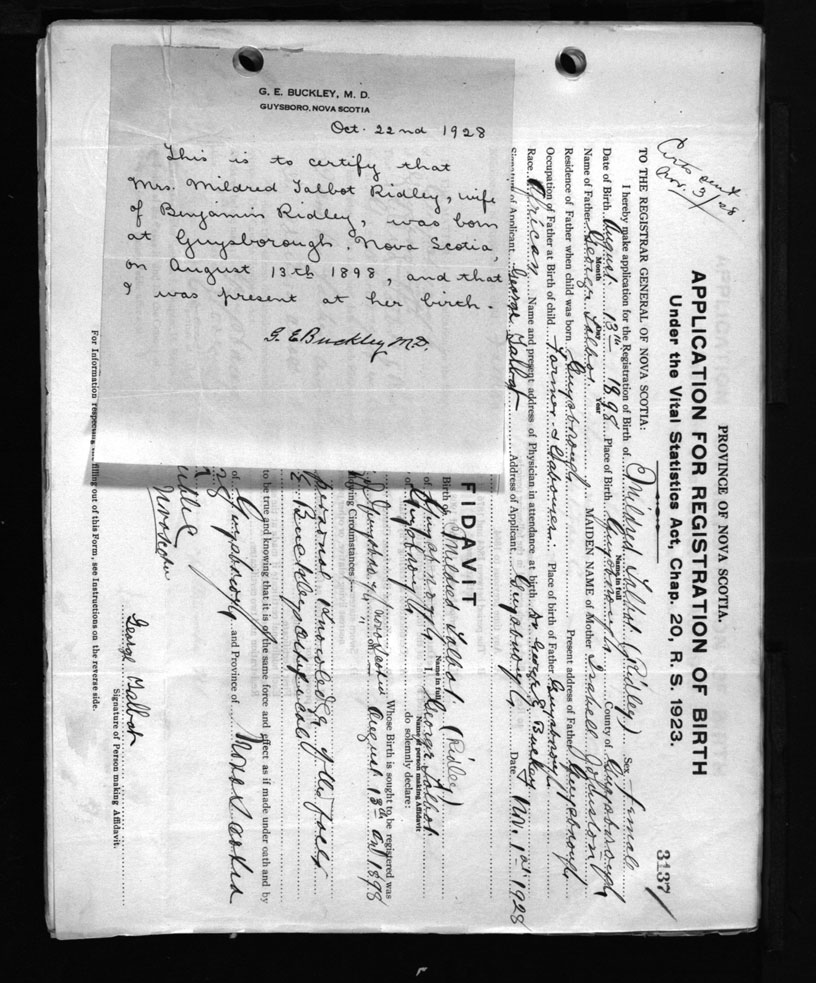 G. E. BUCKLEY, M. D.
GUYSBORO, NOVA SCOTIA
Oct. 22nd 1928
This is to certify that
Mrs. Mildred Talbot Ridley, wife
of Benjamin Ridley, was born
at Guysborough, Nova Scotia,
on August 13th 1898, and that
I was present at her birth.
G. E. Buckley M.D.
Nov. 3/28
PROVINCE OF NOVA SCOTIA.
APPLICATION FOR REGISTRATION OF BIRTH
Under the Vital Statistics Act, Chap. 20, R. S. 1923.
3137
TO THE REGISTRAR GENERAL OF NOVA SCOTIA:
I hereby make application for the Registration of Birth of Mildred Talbot (Ridley) Sex female
Name in full
Date of Birth August 13th 1898 Place of Birth Guysborough County of Guysborough
Month Day Year
Name of Father George Talbot MAIDEN NAME of Mother Johnston
Residence of Father when child was born Guysborough Present address of Father Guysborough
Occupation of Father at Birth of child Farmer & Labourer Place of birth of Father Guysborough
Race African Name and present address of Physician in attendance at birth Dr George E Buckley
Signature of Applicant George Talbot Address of Applicant Guysborough Date Nov. 1st 1928
FIDAVIT
Birth of Mildred Talbot (Ridley)
Name in full
of Guysborough I, George Talbot
Name of person making Affidavit
of Guysborough do solemnly declare:
Whose Birth is sought to be registered was
Guysborough Nova Scotia August 13th 1898
Circumstances
personal knowledge of the facts
E Buckley certificate
to be true and knowing that it is of the same force and effect as if made under oath and by
of Guysborough and Province of Nova Scotia
George Talbot
Signature of Person making Affidavit.
For Information respecting filling out of this Form, see Instructions on the reverse side.